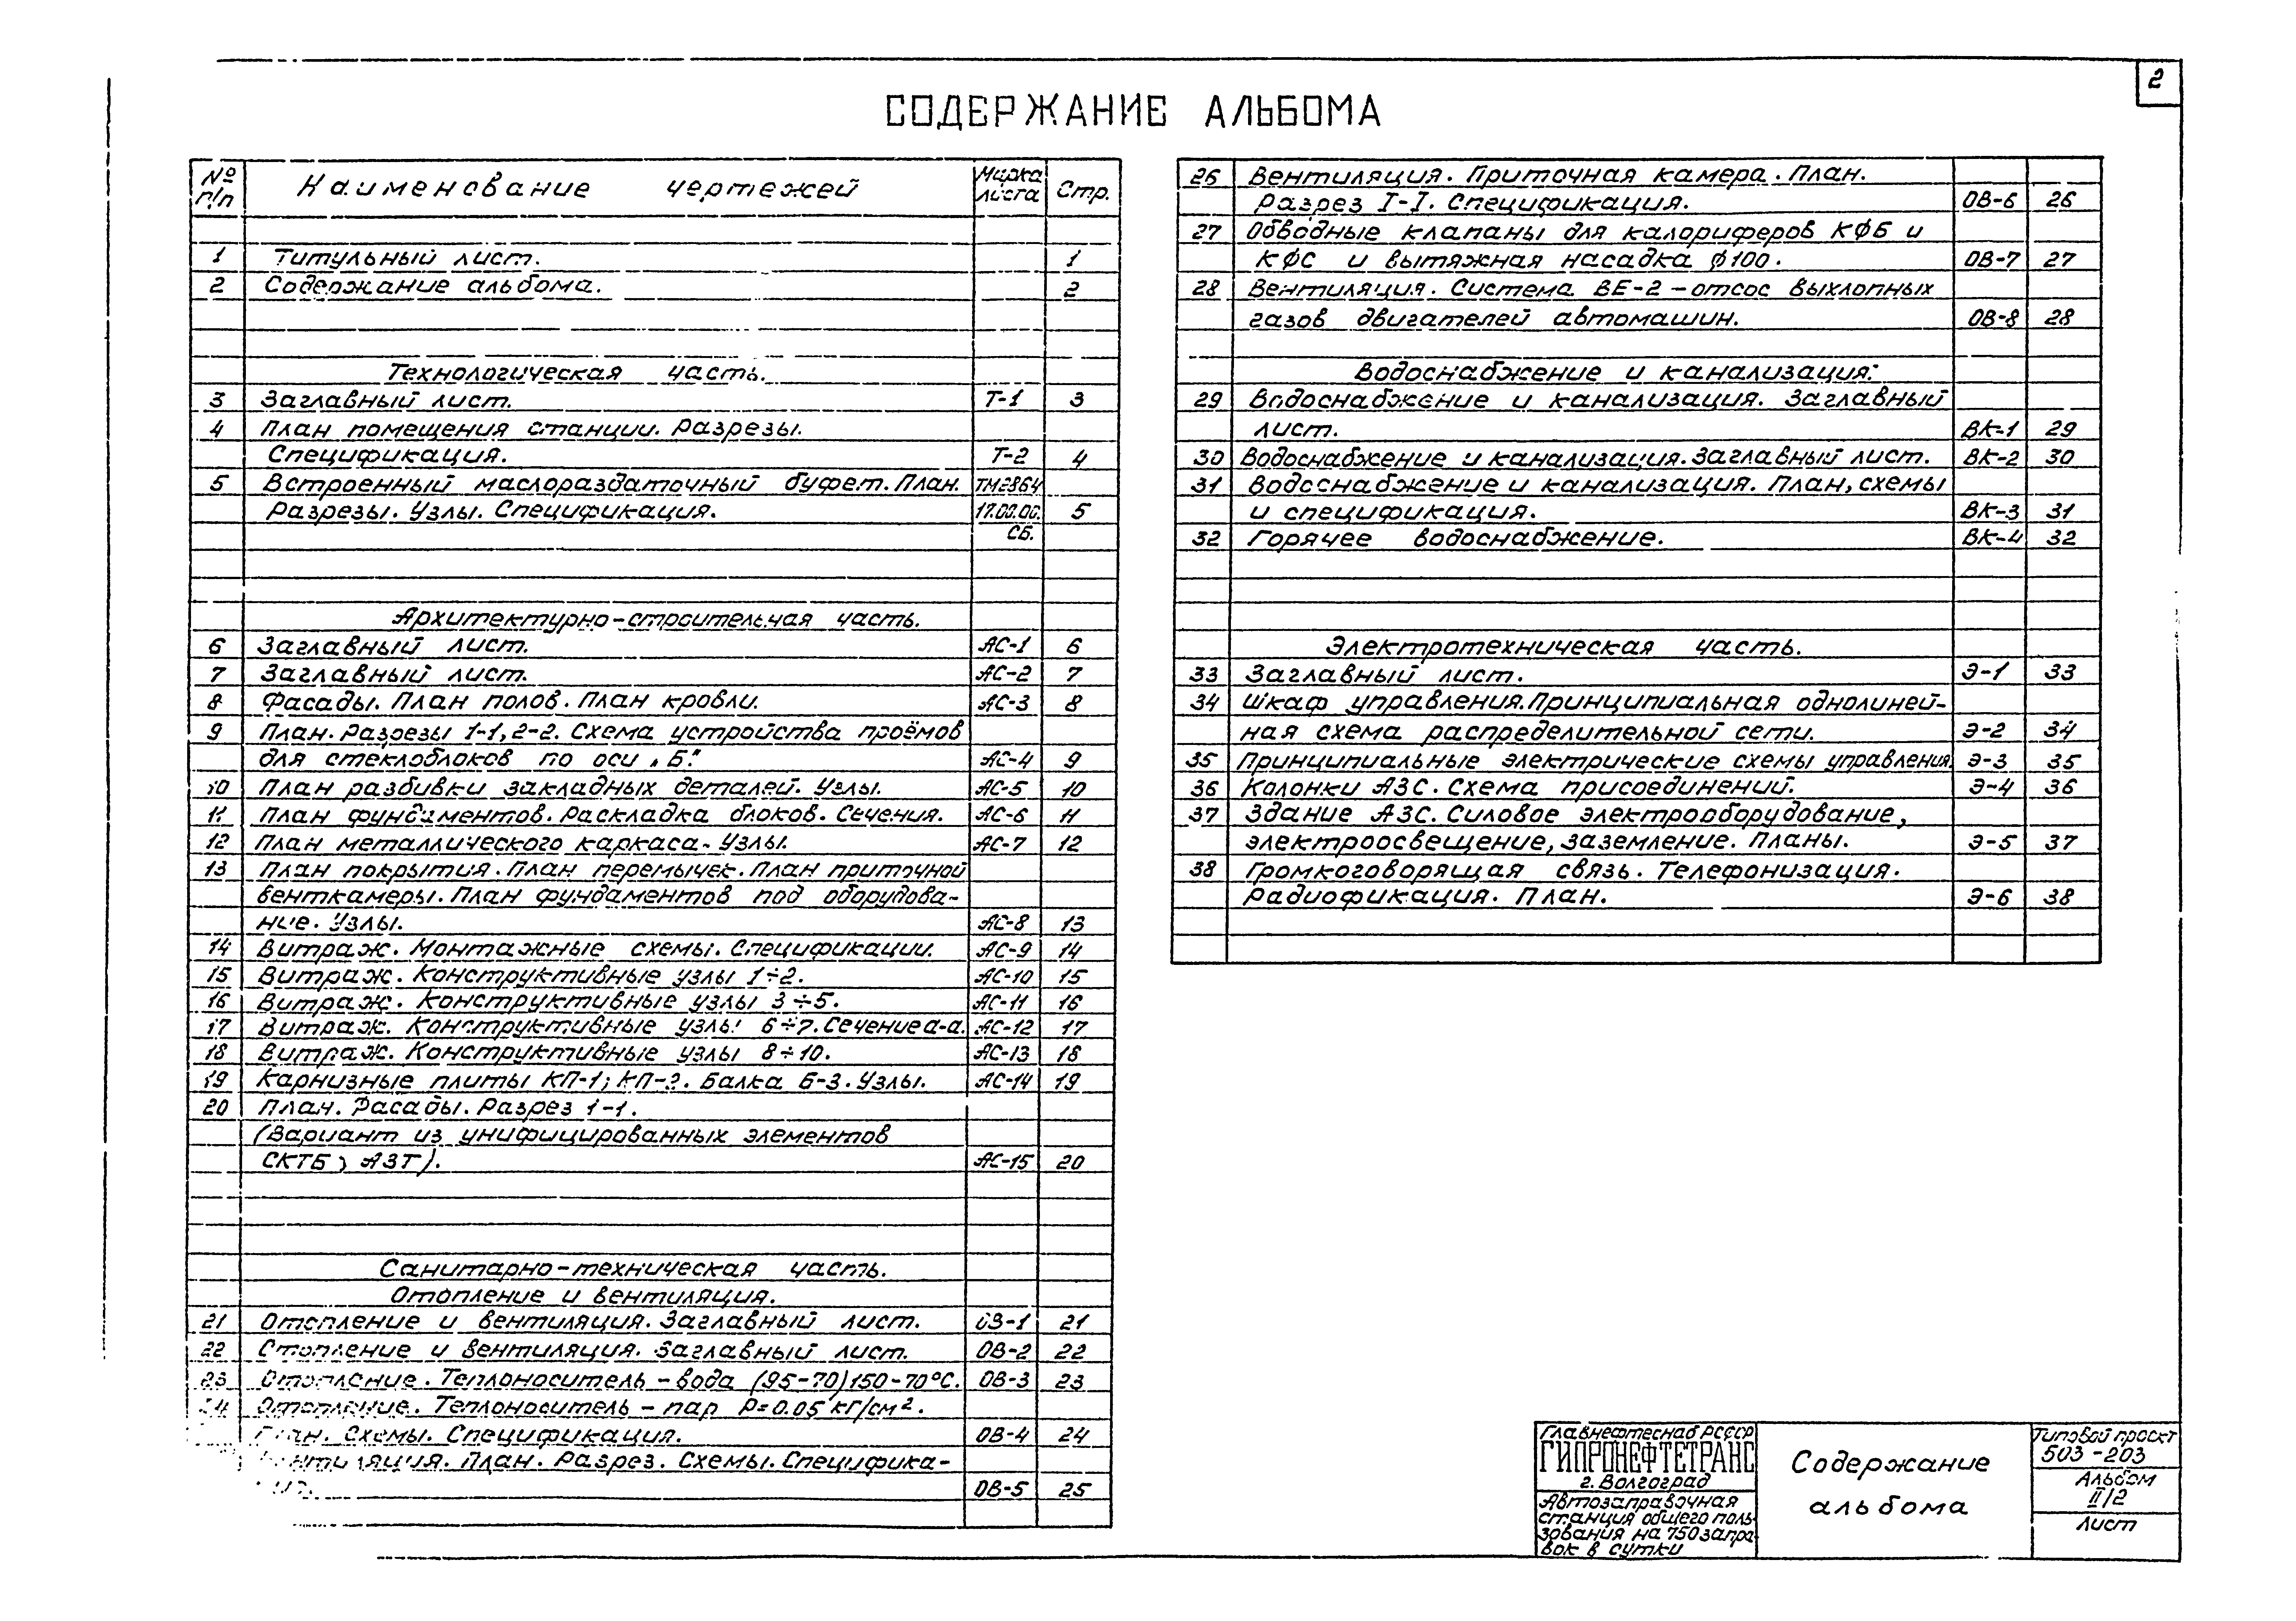 2
СОДЕРЖАНИЕ АЛЬБОМА
№ п/п Наименование чертежей Марка листа Стр.
1 Титульный лист. 1
2 Содержание альбома. 2
Технологическая часть.
3 Заглавный лист. Т-1 3
4 План помещения станции. Разрезы.
Спецификация. Т-2 4
5 Встроенный маслораздаточный буфет. План. ТМ2864
Разрезы. Узлы. Спецификация. 17.00.00. 5
СБ.
Архитектурно-строительная часть.
6 Заглавный лист. АС-1 6
7 Заглавный лист. АС-2 7
8 Фасады. План полов. План кровли. АС-3 8
9 План. Разрезы 1-1, 2-2. Схема устройства проёмов
для стеклоблоков по оси „Б". АС-4 9
10 План разбивки закладных деталей. Узлы. АС-5 10
11 План фундаментов. Раскладка блоков. Сечения. АС-6 11
12 План металлического каркаса. Узлы. АС-7 12
13 План покрытия. План перемычек. План приточной
венткамеры. План фундаментов под оборудова-
ние. Узлы. АС-8 13
14 Витраж. Монтажные схемы. Спецификации. АС-9 14
15 Витраж. Конструктивные узлы 1÷2. АС-10 15
16 Витраж. Конструктивные узлы 3÷5. АС-11 16
17 Витраж. Конструктивные узлы 6÷7. Сечение а-а. АС-12 17
18 Витраж. Конструктивные узлы 8÷10. АС-13 18
19 Карнизные плиты КП-1; КП-2. Балка Б-3. Узлы. АС-14 19
20 План. Фасады. Разрез 1-1.
(Вариант из унифицированных элементов
СКТБ, АЗТ). АС-15 20
Санитарно-техническая часть.
Отопление и вентиляция.
21 Отопление и вентиляция. Заглавный лист. ОВ-1 21
22 Отопление и вентиляция. Заглавный лист. ОВ-2 22
23 Отопление. Теплоноситель - вода (95-70) 150-70°С. ОВ-3 23
24 Отопление. Теплоноситель - пар Р=0.05 кг/см².
План. Схемы. Спецификация. ОВ-4 24
Вентиляция. План. Разрез. Схемы. Специфика-
ОВ-5 25
26 Вентиляция. Приточная камера. План.
Разрез I-I. Спецификация. ОВ-6 26
27 Обводные клапаны для калориферов КФБ и
КФС и вытяжная насадка ф100. ОВ-7 27
28 Вентиляция. Система ВЕ-2 - отсос выхлопных
газов двигателей автомашин. ОВ-8 28
Водоснабжение и канализация.
29 Водоснабжение и канализация. Заглавный
лист. ВК-1 29
30 Водоснабжение и канализация. Заглавный лист. ВК-2 30
31 Водоснабжение и канализация. План, схемы
и спецификация. ВК-3 31
32 Горячее водоснабжение. ВК-4 32
Электротехническая часть.
33 Заглавный лист. Э-1 33
34 Шкаф управления. Принципиальная однолиней-
ная схема распределительной сети. Э-2 34
35 Принципиальные электрические схемы управления. Э-3 35
36 Колонки АЗС. Схема присоединений. Э-4 36
37 Здание АЗС. Силовое электрооборудование,
электроосвещение, заземление. Планы. Э-5 37
38 Громкоговорящая связь. Телефонизация.
Радиофикация. План. Э-6 38
Главнефтеснаб РСФСР
ГИПРОНЕФТЕТРАНС
г. Волгоград
Автозаправочная
станция общего поль-
зования на 750 запра-
вок в сутки
Содержание
альбома
Типовой проект
503-203
Альбом
II/2
Лист